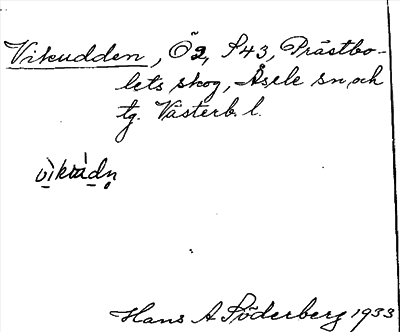 Vikudden, Ö2, S43, Prästbo-
lets skog, Åsele sn och
tg. Västerb. l.
Hans A Söderberg 1933